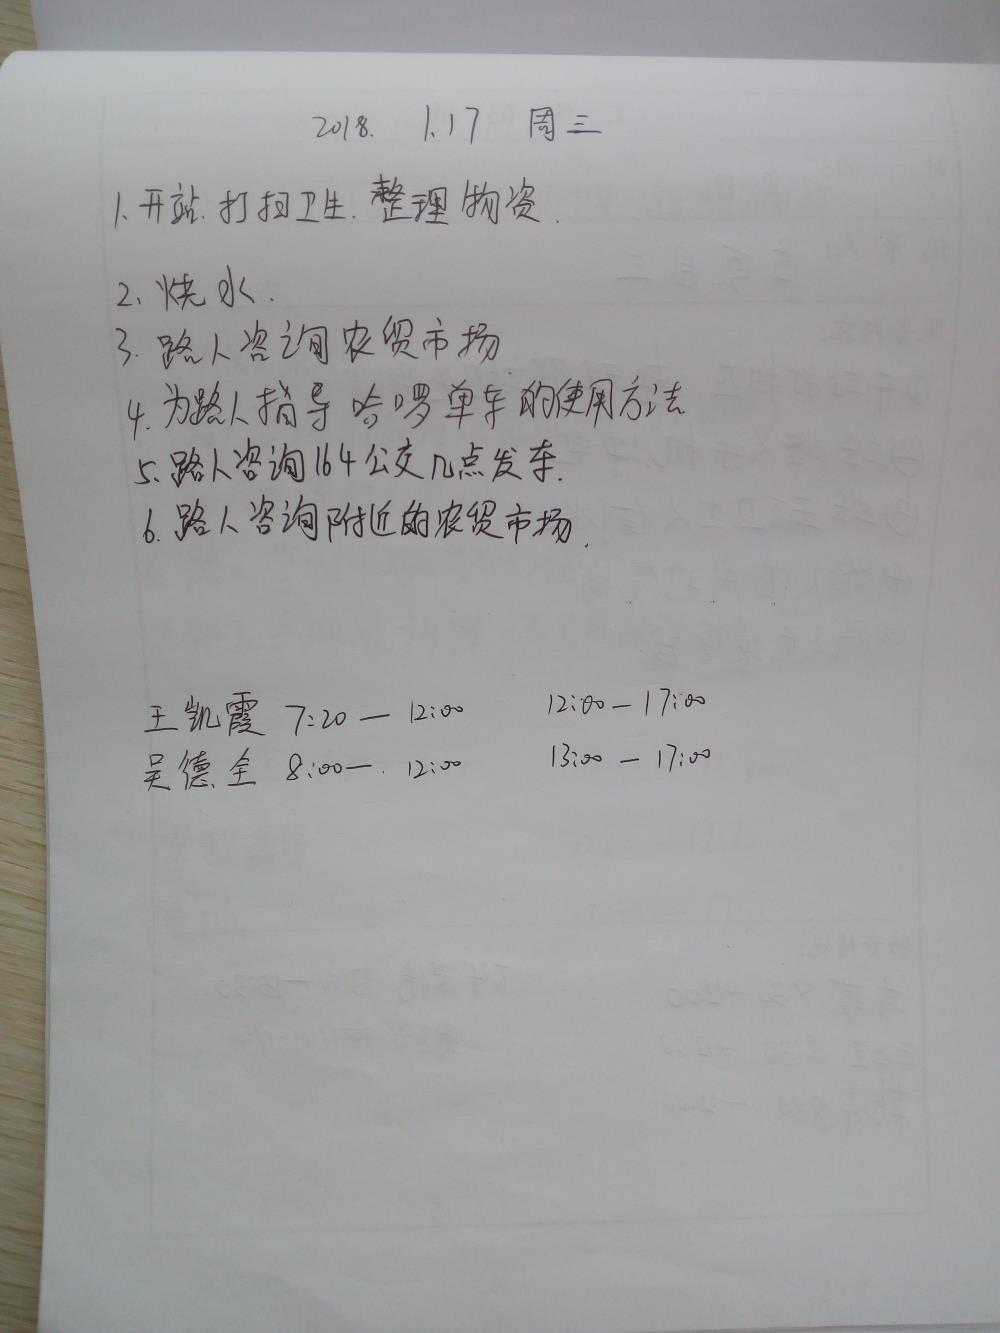 2018. 1.17 周三
1. 开站. 打扫卫生. 整理物资.
2. 烧水.
3. 路人咨询农贸市场
4. 为路人指导哈啰单车的使用方法
5. 路人咨询164公交几点发车.
6. 路人咨询附近的农贸市场.
王凯霞 7:20 — 12:00 12:00 — 17:00
吴德全 8:00 — 12:00 13:00 — 17:00